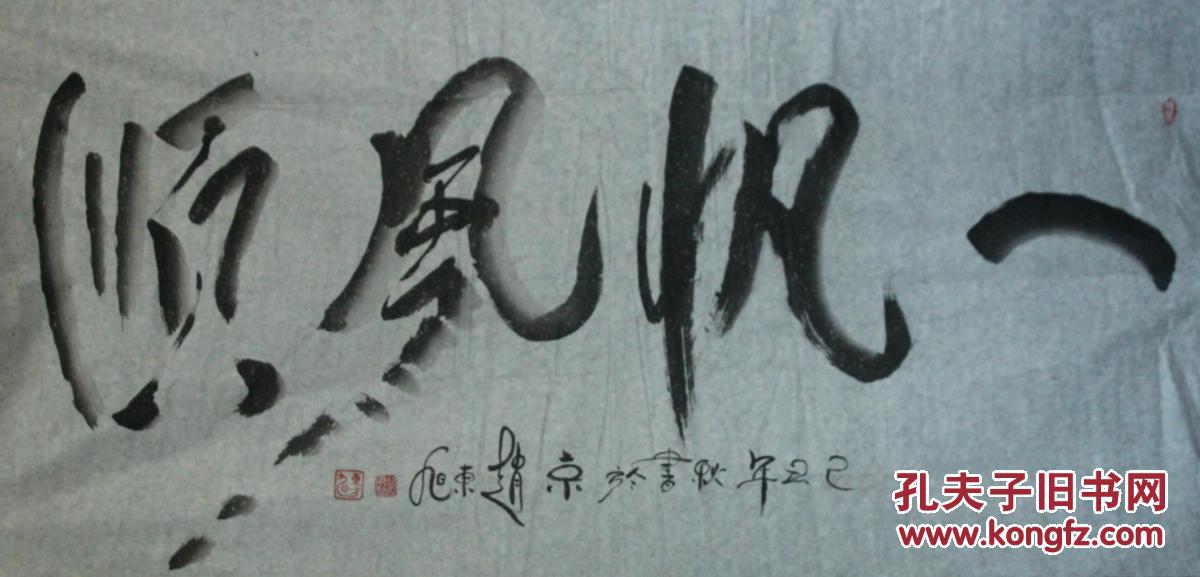 一帆風順
己丑年秋書於京趙東旭
孔夫子旧书网
www.kongfz.com